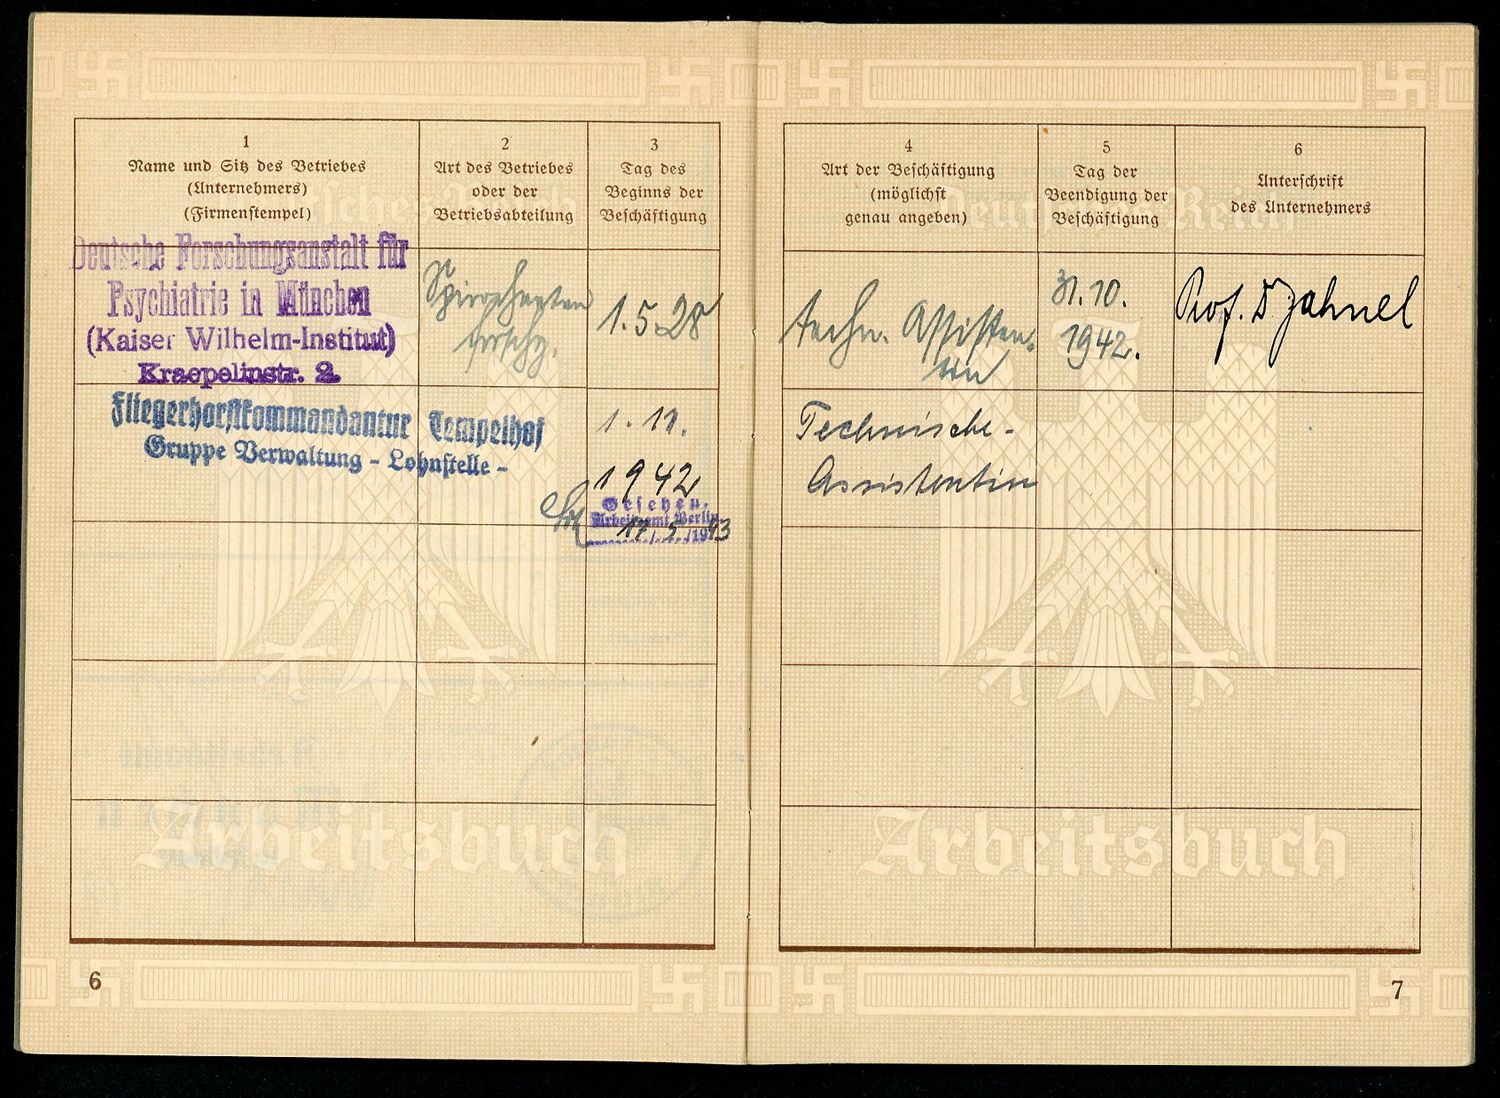 1
Name und Sitz des Betriebes
(Unternehmers)
(Firmenstempel)
2
Art des Betriebes
oder der
Betriebsabteilung
3
Tag des
Beginns der
Beschäftigung
Deutsche Forschungsanstalt für
Psychiatrie in München
(Kaiser Wilhelm-Institut)
Kraepelinstr. 2.
Spirochaeten
forschg.
1.5.28
Fliegerhorstkommandantur Tempelhof
Gruppe Verwaltung - Lohnstelle -
1. 11.
1942
Gesehen,
Arbeitsamt Berlin
17/5/1943
Arbeitsbuch
6
4
Art der Beschäftigung
(möglichst
genau angeben)
5
Tag der
Beendigung der
Beschäftigung
6
Unterschrift
des Unternehmers
Deutsches Reich
techn. Assisten-
tin
31.10.
1942.
Prof. D Jahnel
Technische-
Assistentin
Arbeitsbuch
7